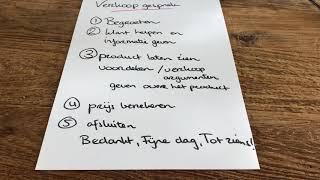 Verkoop gesprek
① Begroeten
② Klant helpen en
informatie geven
③ product laten zien
voordelen / verkoop
argumenten
geven over het product
④ prijs berekenen
⑤ afsluiten
Bedankt, Fijne dag, Tot ziens!